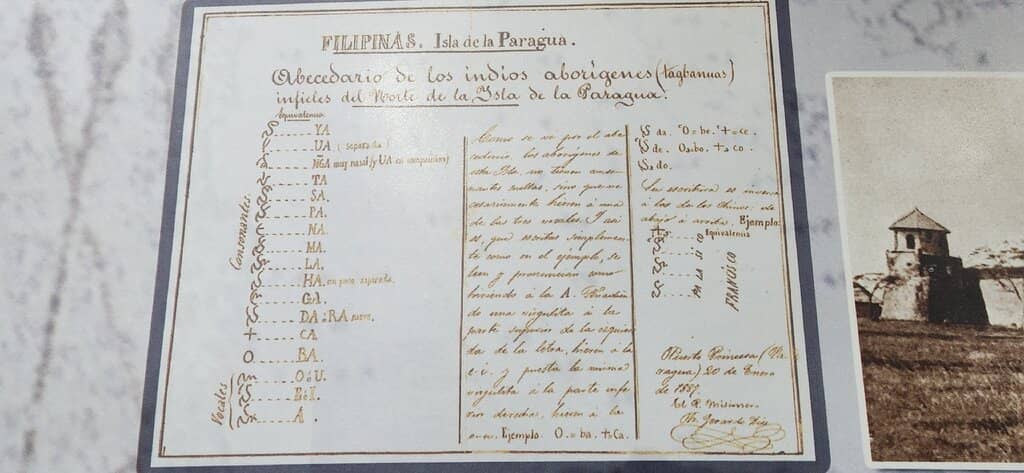 FILIPINAS. Isla de la Paragua.
Abecedario de los indios aborígenes (tagbanuas)
infieles del Norte de la Isla de la Paragua.
Equivalencia
YA
UA (separada)
ÑGA muy nasal (y UA en composición)
TA
SA.
PA.
NA.
MA.
LA.
HA. en poco aspirada.
GA.
DA: RA suave.
+ CA.
O BA.
O ó U.
E ó I.
A.
Consonantes
Vocales
Como se ve por el abe
cedario, los aborígenes de
esta Isla, no tienen conso
nantes sueltas, sino que ne
cesariamente hieren á una
de las tres vocales. Y así
es, que escritas simplemen-
te como en el ejemplo, se
leen y pronuncian como
hiriendo á la A. Poniéndo
de una virgulita á la
parte superior de la izquier
da de la letra, hieren á la
e.i. y puesta la misma
virgulita á la parte infe
rior derecha, hieren á la
o=u. Ejemplo. O=ba. +=Ca.
da. O=be. +=ce.
de. O=bo. +=co.
do.
La escritura es inversa
á la de los Chinos: de
abajo á arriba. Ejemplo:
Equivalencia
PA LA SI CO
FRANCISCO
Puerto Princesa (Pa
ragua) 20 de Enero
de 1889.
El P. Misionero
Fr. Gerardo Díez